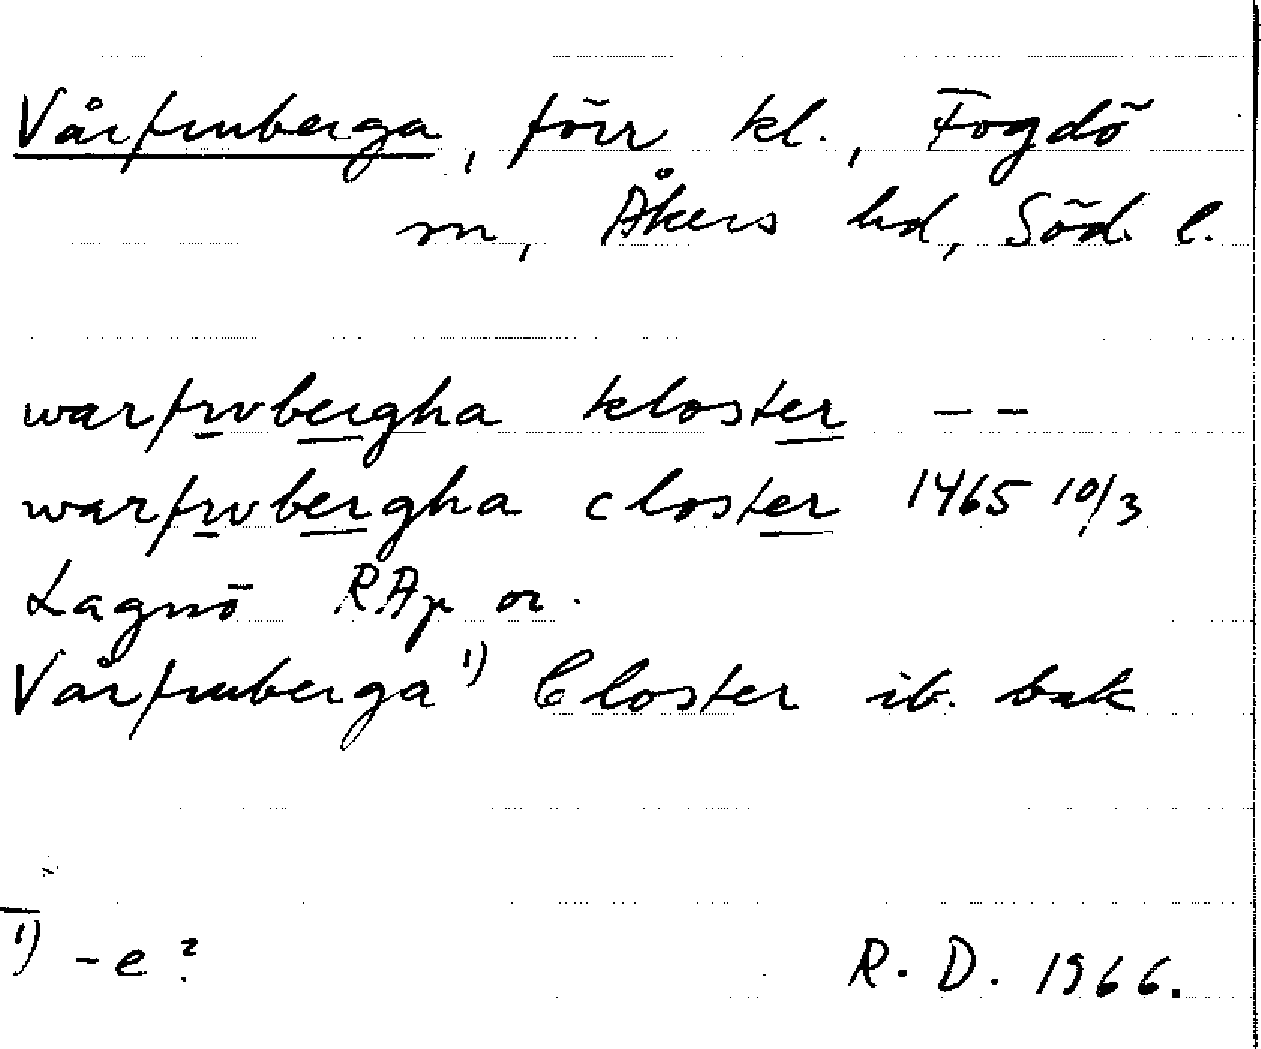 Vårfruberga, förr kl., Fogdö
sn, Åkers hd, Söd. l.
warfrvbergha kloster – –
warfrvbergha closter 1465 10/3
Lagnö RAp or.
Vårfruberga 1) Closter ib. bak
1) -e?
R. D. 1966.